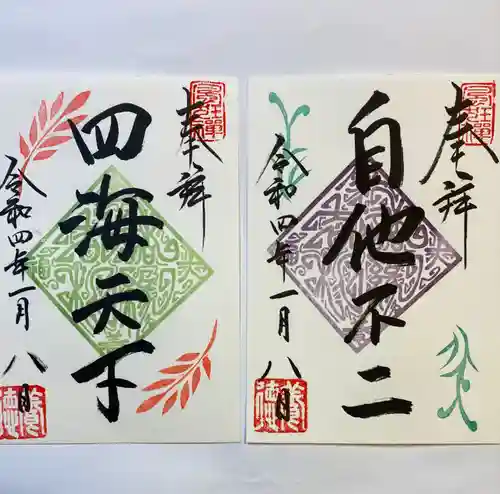 奉拝
四海天下
令和四年一月八日
奉拝
自他不二
令和四年一月八日